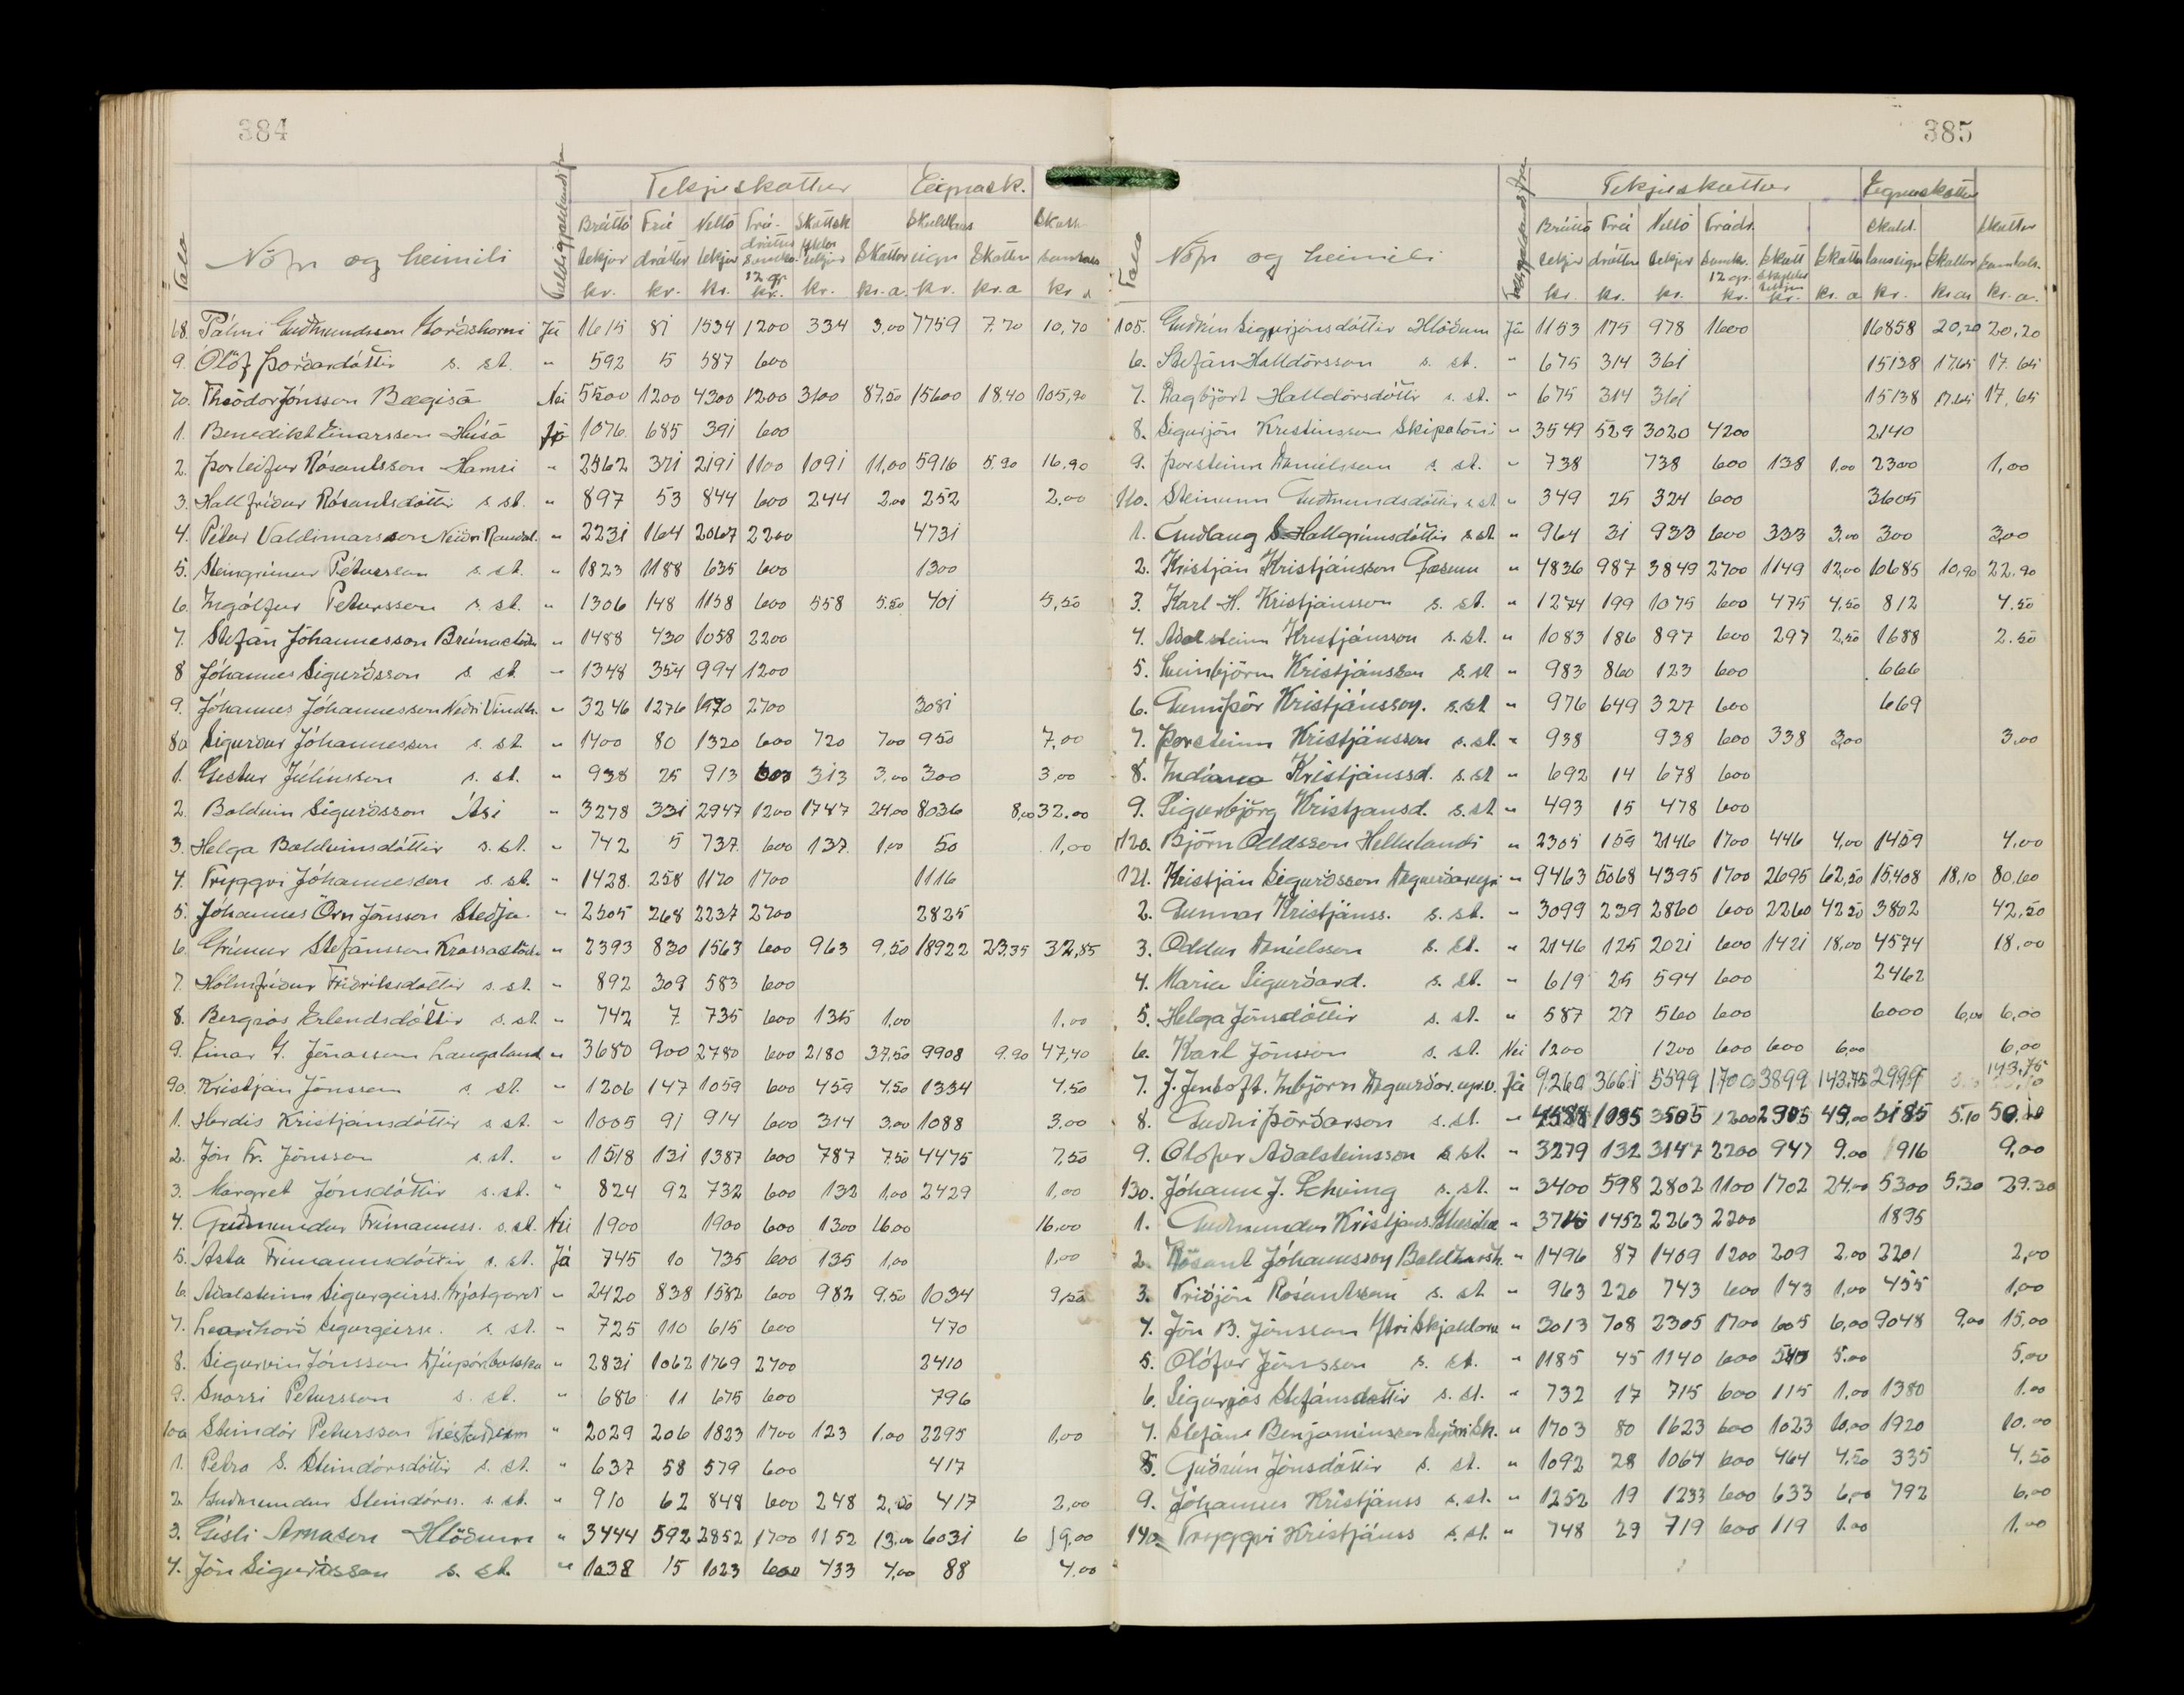 384
Tala
Nöfn og heimili
Tekjuskattur Eignask.
Brúttó tekjur kr. Frá dráttur kr. Nettó tekjur kr. Frá- dráttur 12 gr. kr. Skattsk tekjur kr. Skattur kr. a. Skuldlaus eign kr. Skattur kr. a kr a
68. Pálmi Guðmundsson Já 1615 81 1534 1200 334 3,00 7759 7.70 10,70
9. Ólöf Þórðardóttir s. st. " 592 5 587 600
70. Theódor Jónsson Bægisá Nei 5500 1200 4300 1200 3100 87,50 15600 18.40 105,90
1. Benedikt Einarsson Húsá Já 1076 685 391 600
2. Þorleifur Rósantsson Hamri " 2562 371 2191 1100 1091 11,00 5916 5.90 16,90
3. Hallfríður Rósantsdóttir s st. " 897 53 844 600 244 2,00 252 2,00
4. Pétur Valdimarsson Neðri Rauðal. " 2231 164 2067 2200 4731
5. Steingrímur Pétursson s. st. " 1823 1188 635 600 1300
6. Ingólfur Petursson s. st. " 1306 148 1158 600 558 5.50 401 5,50
7. Stefán Jóhannesson " 1488 430 1058 2200
8 Jóhannes Sigurðsson s st. " 1348 354 994 1200
9. Jóhannes Jóhannesson Neðri Vindh. " 3246 1276 1970 2700 3081
80 Sigurður Jóhannesson s. st. " 1400 80 1320 600 720 7,00 950 7,00
1. Gestur Júlíusson s. st. " 938 25 913 600 313 3,00 300 3,00
2. Baldvin Sigurðsson Ási " 3278 331 2947 1200 1747 24,00 8036 8,00 32.00
3. Helga Baldvinsdóttir s. st. " 742 5 737 600 137 1,00 50 1,00
4. Tryggvi Jóhannesson s. st. " 1428 258 1170 1700 1116
5. Jóhannes Örn Jónsson Steðja " 2505 268 2237 2700 2825
6. Grímur Stefánsson " 2393 830 1563 600 963 9,50 18922 23.35 32,85
7. Hólmfríður Friðriksdóttir s. st. " 892 309 583 600
8. Bergrós Erlendsdóttir s. st. " 742 7 735 600 135 1,00 1,00
9. Einar G. Jónasson Laugaland " 3680 900 2780 600 2180 37,50 9908 9.90 47,40
90. Kristján Jónsson s. st. " 1206 147 1059 600 459 4,50 1334 4,50
1. Herdís Kristjánsdóttir s st. " 1005 91 914 600 314 3,00 1088 3,00
2. Jón Fr. Jónsson s. st. " 1518 131 1387 600 787 7,50 4475 7,50
3. Margrét Jónsdóttir s. st. " 824 92 732 600 132 1,00 2429 1,00
4. Guðmundur Frímannss. s. st. Nei 1900 1900 600 1300 16,00 16,00
5. Ásta Frímannsdóttir s. st. Já 745 10 735 600 135 1,00 1,00
6. Aðalsteinn Sigurgeirss. " 2420 838 1582 600 982 9,50 1034 9,50
7. Sigurgeirss. s. st. " 725 110 615 600 470
8. Sigurvin Jónsson " 2831 1062 1769 2700 2410
9. Snorri Petursson s. st. " 686 11 675 600 796
100 Steindór Petursson " 2029 206 1823 1700 123 1.00 2295 1,00
1. Petra S. Steindórsdóttir s. st. " 637 58 579 600 417
2. Guðmundur Steindórss. s. st. " 910 62 848 600 248 2,00 417 2,00
3. Gísli Árnason Hlöðum " 3444 592 2852 1700 1152 13.00 6031 6 19,00
4. Jón Sigurðsson s. st. " 1038 15 1023 600 433 4,00 88 4,00
385
Tala
Nöfn og heimili
Tekjuskattur Eignaskattur
Brúttó tekjur kr. Frá dráttur kr. Nettó tekjur kr. Frádr. 12 gr. kr. kr. Skattur kr. a Skuld. lauseign kr. Skattur kr. a Skattur samtals kr. a.
105. Guðrún Sigurjónsdóttir Hlöðum Já 1153 175 978 1600 16858 20,20 20,20
6. Stefán Halldórsson s. st. " 675 314 361 15138 17,65 17.65
7. Dagbjört Halldórsdóttir s. st. " 675 314 361 15138 17,65 17,65
8. Sigurjón Kristinsson Skipalóni " 3549 529 3020 4200 2140
9. Þorsteinn Daníelsson s. st. " 738 738 600 138 1.00 2300 1,00
110. Steinunn Guðmundsdóttir s st " 349 25 324 600 3605
1. Guðlaug S Hallgrímsdóttir s st. " 964 31 933 600 333 3,00 300 3,00
2. Kristján Kristjánsson Gæsum " 4836 987 3849 2700 1149 12,00 10685 10,90 22.90
3. Karl H. Kristjánsson s. st. " 1274 199 1075 600 475 4,50 812 4.50
4. Aðalsteinn Kristjánsson s. st. " 1083 186 897 600 297 2,50 1688 2.50
5. Sveinbjörn Kristjánsson s. st " 983 860 123 600 666
6. Gunnþór Kristjánsson. s. st " 976 649 327 600 669
7. Þorsteinn Kristjánsson s. st. " 938 938 600 338 3,00 3,00
8. Indíana Kristjánsd. s. st " 692 14 678 600
9. Sigurbjörg Kristjansd. s. st " 493 15 478 600
120. Björn Oddsson Hellulandi " 2305 159 2146 1700 446 4,00 1459 4,00
121. Kristján Sigurðsson Dagverðareyri " 9463 5068 4395 1700 2695 62,50 15,408 18,10 80,60
2. Gunnar Kristjánss. s. st. " 3099 239 2860 600 2260 42 50 3802 42,50
3. Oddur Daníelsson s. st. " 2146 125 2021 600 1421 18,00 4574 18,00
4. María Sigurðard. s. st. " 619 25 594 600 2462
5. Helga Jónsdóttir s. st. " 587 27 560 600 6000 6,00 6,00
6. Karl Jónsson s. st. Nei 1200 1200 600 600 6,00 6,00
7. J. Indbjörn Já 9260 3661 5599 1700 3899 143.75 2999 143,75
8. Guðni Þórðarson s. st. " 4588 1085 3505 1200 2305 49,00 5185 5.10
9. Ólafur Aðalsteinsson s. st. " 3279 132 3147 2200 947 9.00 916 9,00
130. Jóhann J. Schiöng s. st. " 3400 598 2802 1100 1702 24.00 5300 5.30 29.30
1. Guðmundur Kristjáns. " 3715 1452 2263 2200 1895
2. Rósant Jóhannsson " 1496 87 1409 1200 209 2.00 2201 2,00
3. Friðjón Rósantsson s. st " 963 220 743 600 143 1,00 455 1,00
4. Jón B. Jónsson Ytri Skjaldarv " 3013 708 2305 1700 605 6,00 9048 9,00 15,00
5. Ólöfur Jónsson s. st. " 1185 45 1140 600 540 5.00 5,00
6. Sigurjós Stefánsdóttir s. st. " 732 17 715 600 115 1,00 1380 1.00
7. Stefán Benjamínsson Syðri Sk. " 1703 80 1623 600 1023 10,00 1920 10.00
8. Guðrún Jónsdóttir s. st. " 1092 28 1064 600 464 4,50 335 4,50
9. Jóhannes Kristjánss s. st. " 1252 19 1233 600 633 6,00 792 6,00
140. Tryggvi Kristjánss s. st. " 748 29 719 600 119 1.00 1.00